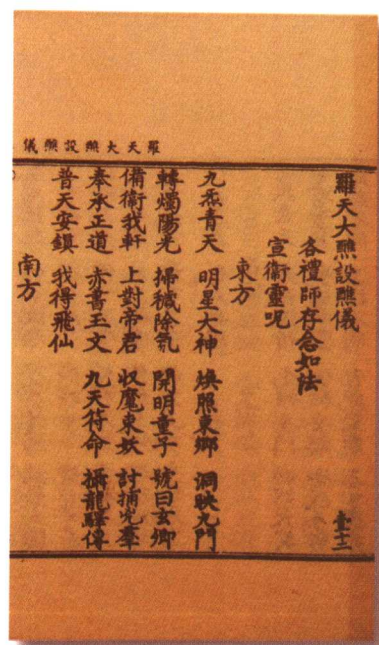 羅天大醮設醮儀
羅天大醮設醮儀
各禮師存念如法
宣衛靈呪
東方
九炁青天 明星大神 煥照東鄉 洞映九門
轉燭陽光 掃穢除氛 開明童子 號曰玄卿
備衛我軒 上對帝君 收魔束妖 討捕兇羣
奉承正道 赤書玉文 九天符命 攝龍驛傳
普天安鎮 我得飛仙
南方